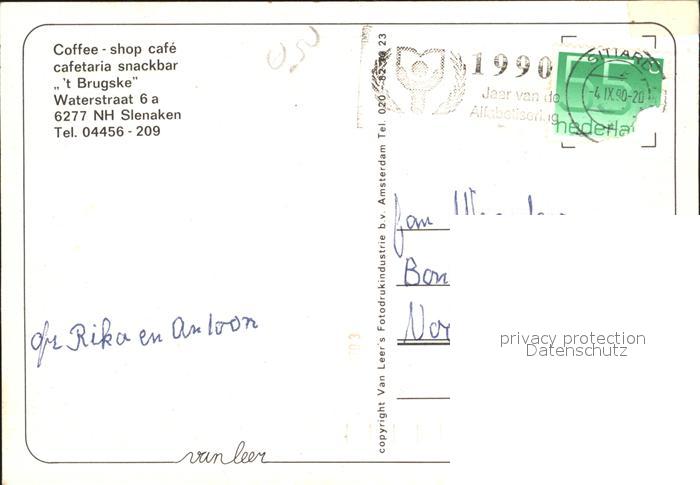 Coffee - shop café
cafetaria snackbar
„ 't Brugske"
Waterstraat 6 a
6277 NH Slenaken
Tel. 04456 - 209
1990
Jaar van de
Alfabetisering
SITTARD
-4.IX.90-20
nederla
copyright Van Leer's Fotodrukindustrie b.v. Amsterdam Tel. 020 -
Jan
Bon
Rika en Antoon
privacy protection
Datenschutz
van leer